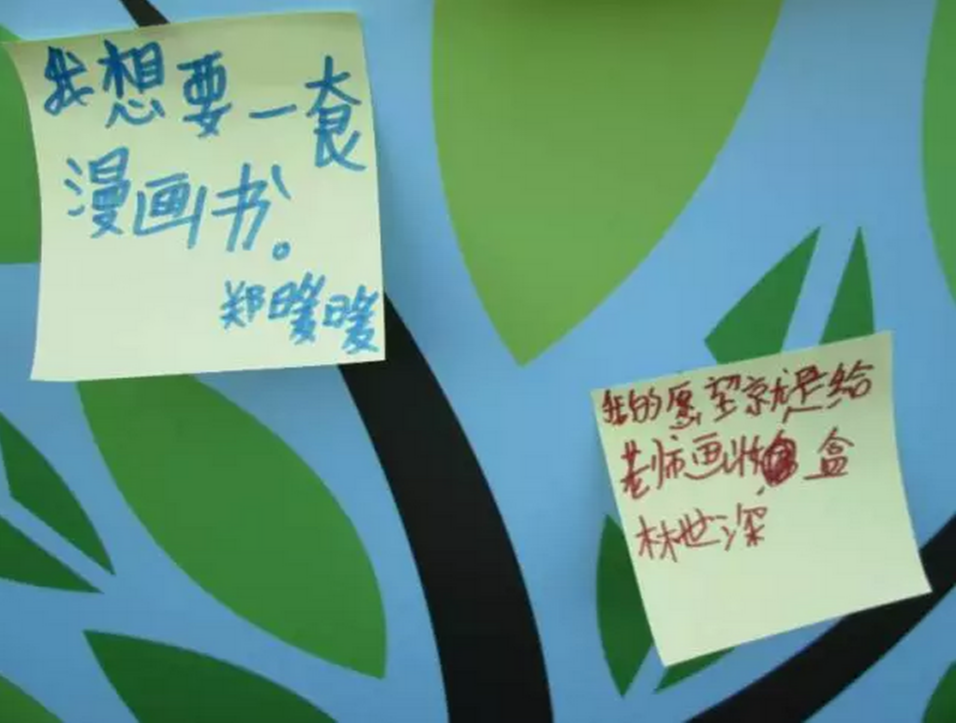 我想要一套
漫画书。
郑暖暖
我的愿望就是给
老师画收盒
林世深